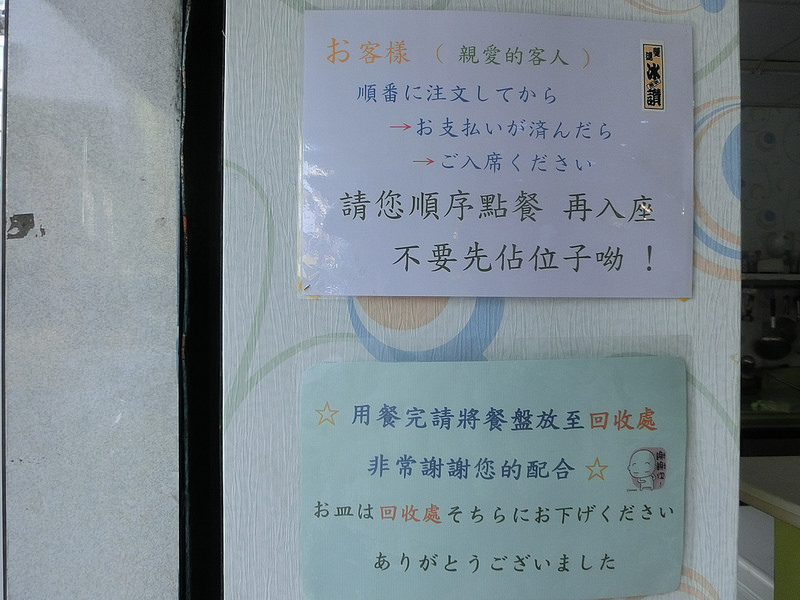 お客様 （ 親愛的客人 ）
冰讚
順番に注文してから
→お支払いが済んだら
→ご入席ください
請您順序點餐 再入座
不要先佔位子呦 ！
☆ 用餐完請將餐盤放至回收處
非常謝謝您的配合 ☆
お皿は回收處そちらにお下げください
ありがとうございました